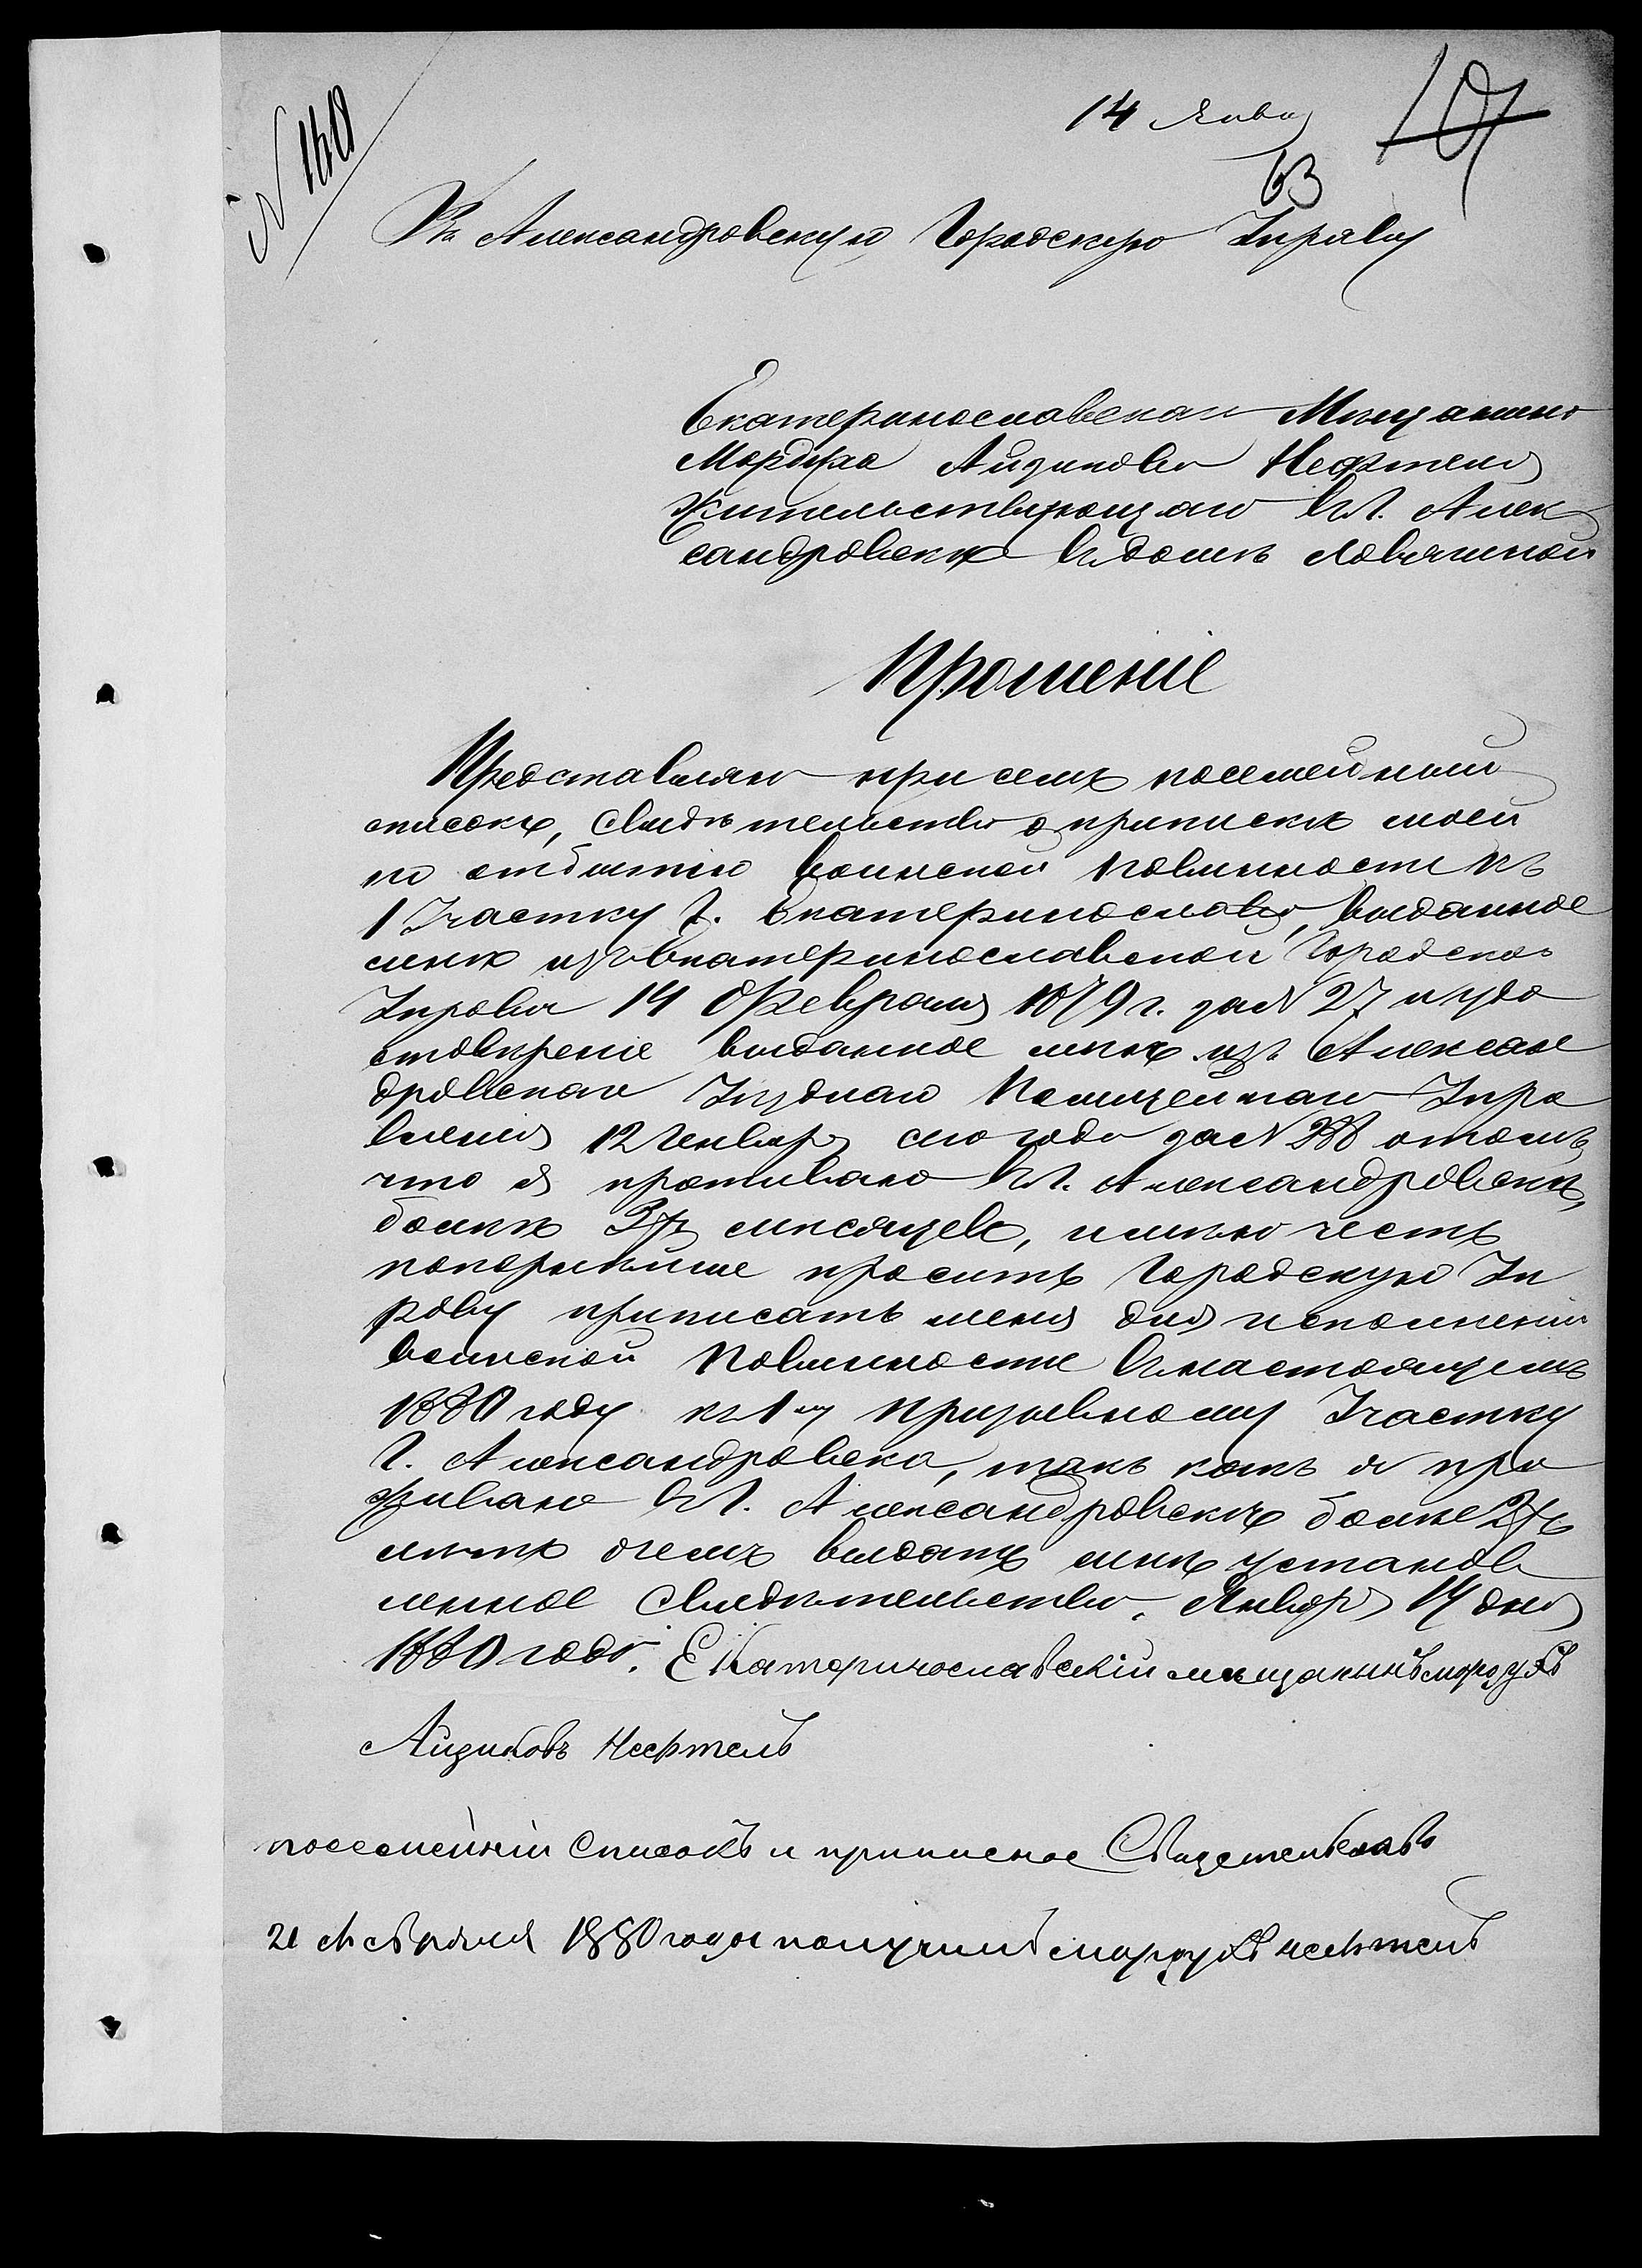 14 Янва
107
63
№ 140
Въ Александровскую Городскую Управу
Екатеринославскаго Мѣщанина
Мордуха Айзикова Нефтеля
жительствующаго въ г. Алек
сандровскѣ въ домѣ Ловягиной
Прошеніе
Представляю при семъ посемейный
списокъ, свидѣтельство о припискѣ моей
по отбытію воинской повинности къ
1 Участку г. Екатеринослава, выданное
мнѣ изъ Екатеринославской Городской
Управы 14 Февраля 1879 г. за № 27 и удо
стовѣреніе выданное мнѣ изъ Алексан
дровскаго Уѣзднаго Полицейскаго Упра
вленія 12 Генваря сего года за № 288 о томъ,
что я проживаю въ г. Александровскѣ,
болѣе 3хъ мѣсяцевъ, имѣю честь
покорнѣйше просить Городскую Уп
раву приписать меня для исполненія
воинской повинности въ настоящемъ
1880 году къ 1му призывному Участку
г. Александровска, такъ какъ я про
живаю въ г. Александровскѣ болѣе
о чемъ выдать мнѣ установ
ленное свидѣтельство. Января 14 дня
1880 года. Екатеринославскій мещанынъ мордухъ
Айзиковъ Нефтель
посемейній Списокъ и приписное
21 февраля 1880 года получилъ мордухъ нефтель